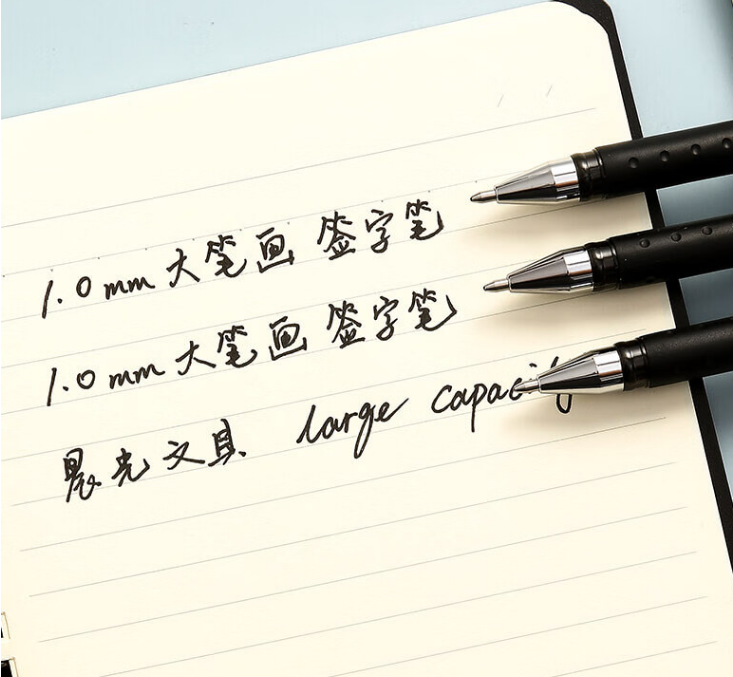 1.0mm大笔画 签字笔
1.0mm大笔画 签字笔
晨光文具 large capacity